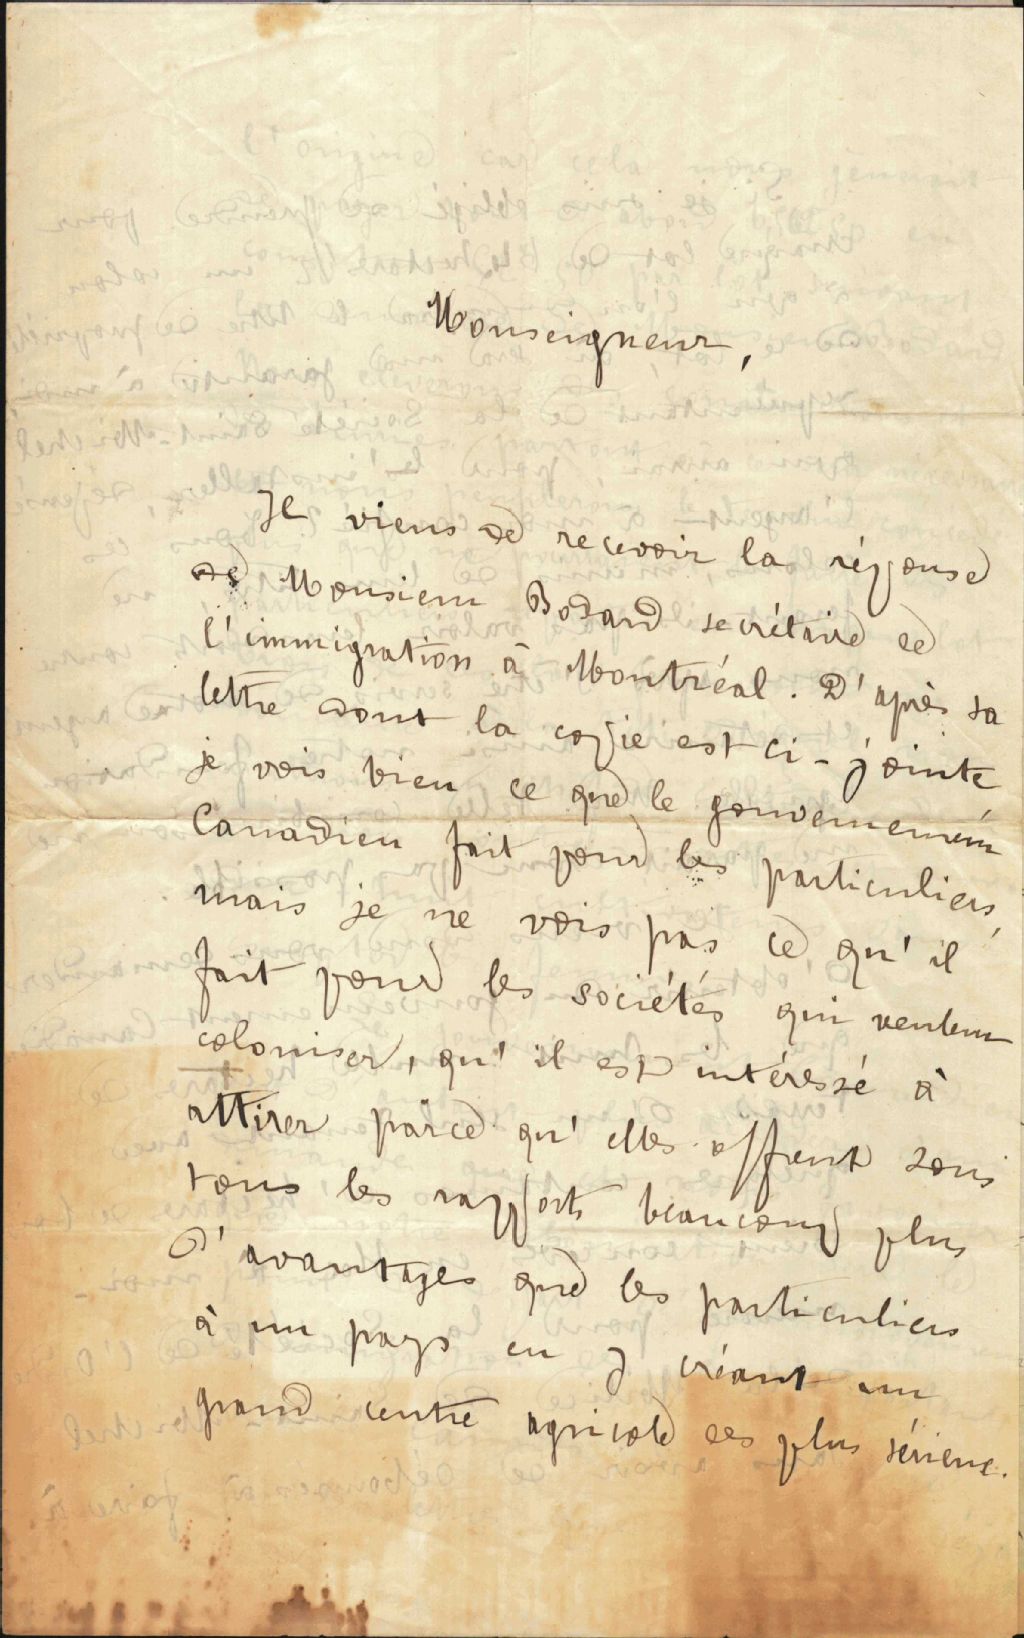 Monseigneur,
Je viens de recevoir la réponse
de Monsieur Bodard secrétaire de
l'immigration à Montréal. D'après sa
lettre dont la copie est ci-jointe
je vois bien ce que le gouvernement
Canadien fait pour les particuliers,
mais je ne vois pas ce qu'il
fait pour les sociétés qui veulent
coloniser, qu'il est intéressé à
attirer parce qu'elles offrent sous
tous les rapports beaucoup plus
d'avantages que les particuliers
à un pays en y créant un
grand centre agricole des plus sérieux.